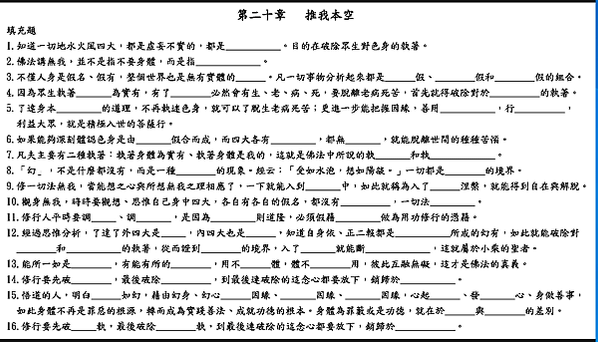 第二十章 推我本空
填充題
1.知道一切地水火風四大，都是虛妄不實的，都是__________。目的在破除眾生對色身的執著。
2.佛法講無我，並不是指不要身體，而是指____________。
3.不僅人身是假名、假有，整個世界也是無有實體的______。凡一切事物分析起來都是______假、________假和________假的組合。
4.因為眾生執著________為實有，有了________必然會有生、老、病、死，要脫離老病死苦，首先就得破除對於__________的執著。
5.了達身本__________的道理，不再執迷色身，就可以了脫生老病死苦；更進一步能把握因緣，善用__________，行__________，
利益大眾，就是積極入世的菩薩行。
6.如果能夠深刻體認色身是由________假合而成，而四大各有________，都無________，就能脫離世間的種種苦惱。
7.凡夫主要有二種執著：執著身體為實有、執著身體是我的，這就是佛法中所說的執________和執________。
8.「幻」，不是什麼都沒有，而是一種________的現象。經云：「受如水泡，想如陽燄。」一切都是________的境界。
9.修一切法無我，當能想之心與所想無我之理相應了，一下就能入到______中，如此就稱為入了______涅槃，就能得到自在與解脫。
10.觀身無我，時時要觀想、思惟自己身中四大，各自有各自的假名，都沒有__________，一切法__________。
11.修行人平時要調_____、調________，是因為________則道隆，必須假藉________做為用功修行的憑藉。
12.經過思惟分析，了達了外四大是_____，內四大也是______，知道自身依、正二報都是__________所成的幻有，如此就能破除對
________和__________的執著，從而證到________的境界，入了______就能斷____________，這就屬於小乘的聖者。
13.能所一如是________，有能有所的________，用不______體，體不________用，彼此互融無礙，這才是佛法的真義。
14.修行要先破________，最後破除________，到最後連破除的這念心都要放下，銷歸於__________。
15.悟道的人，明白______如幻，藉由幻身、幻心______因緣、______因緣、______因緣，心起______、發______心、身做善事，
如此身體不再是罪惡的根源，轉而成為實踐善法、成就功德的根本。身體為罪藪或是功德，就在於______與______的差別。
16.修行要先破_____執，最後破除_____執，到最後連破除的這念心都要放下，銷歸於__________。